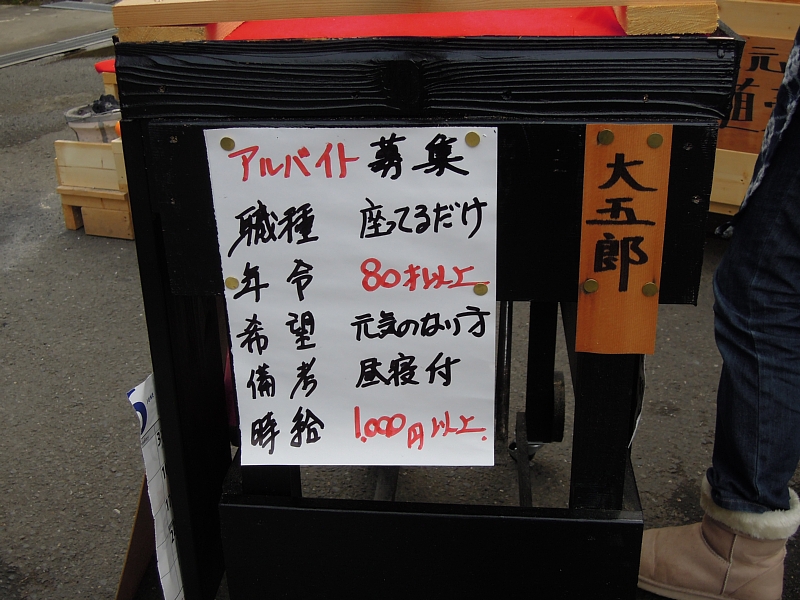 アルバイト募集
職種 座ってるだけ
年令 80才以上
希望 元気のない方
備考 昼寝付
時給 1.000円以上.
大五郎
元